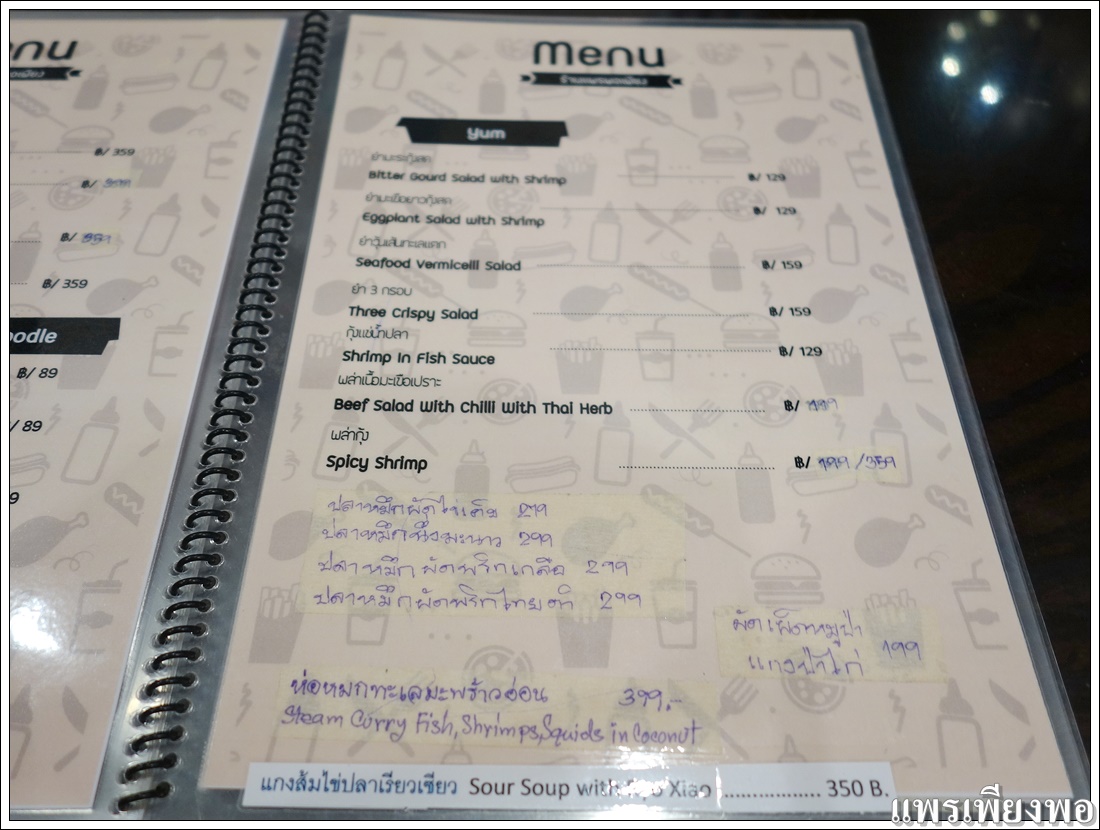 enu
฿/ 359
฿/ 359
oodle
฿/ 89
/ 89
9
Menu
Yum
ยำมะระกุ้งสด
Bitter Gourd Salad with Shrimp ฿/ 129
ยำมะเขือยาวกุ้งสด
Eggplant Salad with Shrimp ฿/ 129
ยำวุ้นเส้นทะเลแตก
Seafood Vermicelli Salad ฿/ 159
ยำ 3 กรอบ
Three Crispy Salad ฿/ 159
กุ้งแช่น้ำปลา
Shrimp In Fish Sauce ฿/ 129
พล่าเนื้อมะเขือเปราะ
Beef Salad With Chilli With Thai Herb ฿/
พล่ากุ้ง
Spicy Shrimp ฿/ 199 /359
ปลาหมึกผัดไข่เค็ม 299
ปลาหมึกนึ่งมะนาว 299
ปลาหมึกผัดพริกเกลือ 299
ปลาหมึกผัดพริกไทยดำ 299
ผัดเผ็ดหมูป่า
แกงป่าไก่ 199
ห่อหมกทะเลมะพร้าวอ่อน 399.-
Steam Curry Fish, Shrimps, Squids in Coconut
แกงส้มไข่ปลาเรียวเซียว Sour Soup with Xiao ................ 350 B.
แพรเพียงพอ